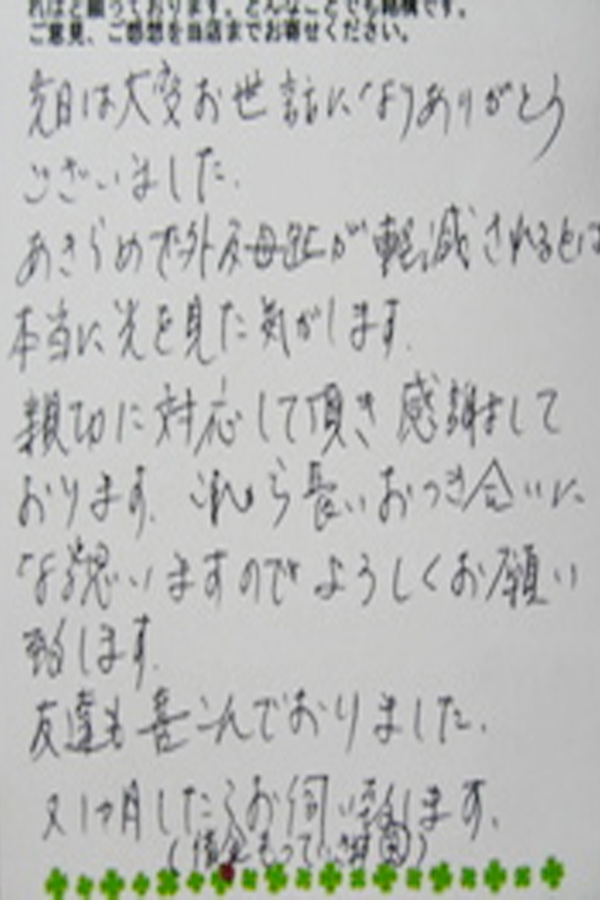 ればと願っております。どんなことでも結構です。
ご意見、ご感想を当店までお寄せください。
先日は大変お世話になりありがとう
ございました.
あきらめて外反母趾が軽減されるとは
本当に光を見た気がします.
親切に対応して頂き感謝して
おります. これから長いおつき合いに
なる思いますのでよろしくお願い
致します.
友達も喜こんでおりました.
又1ヶ月したらお伺い致します.